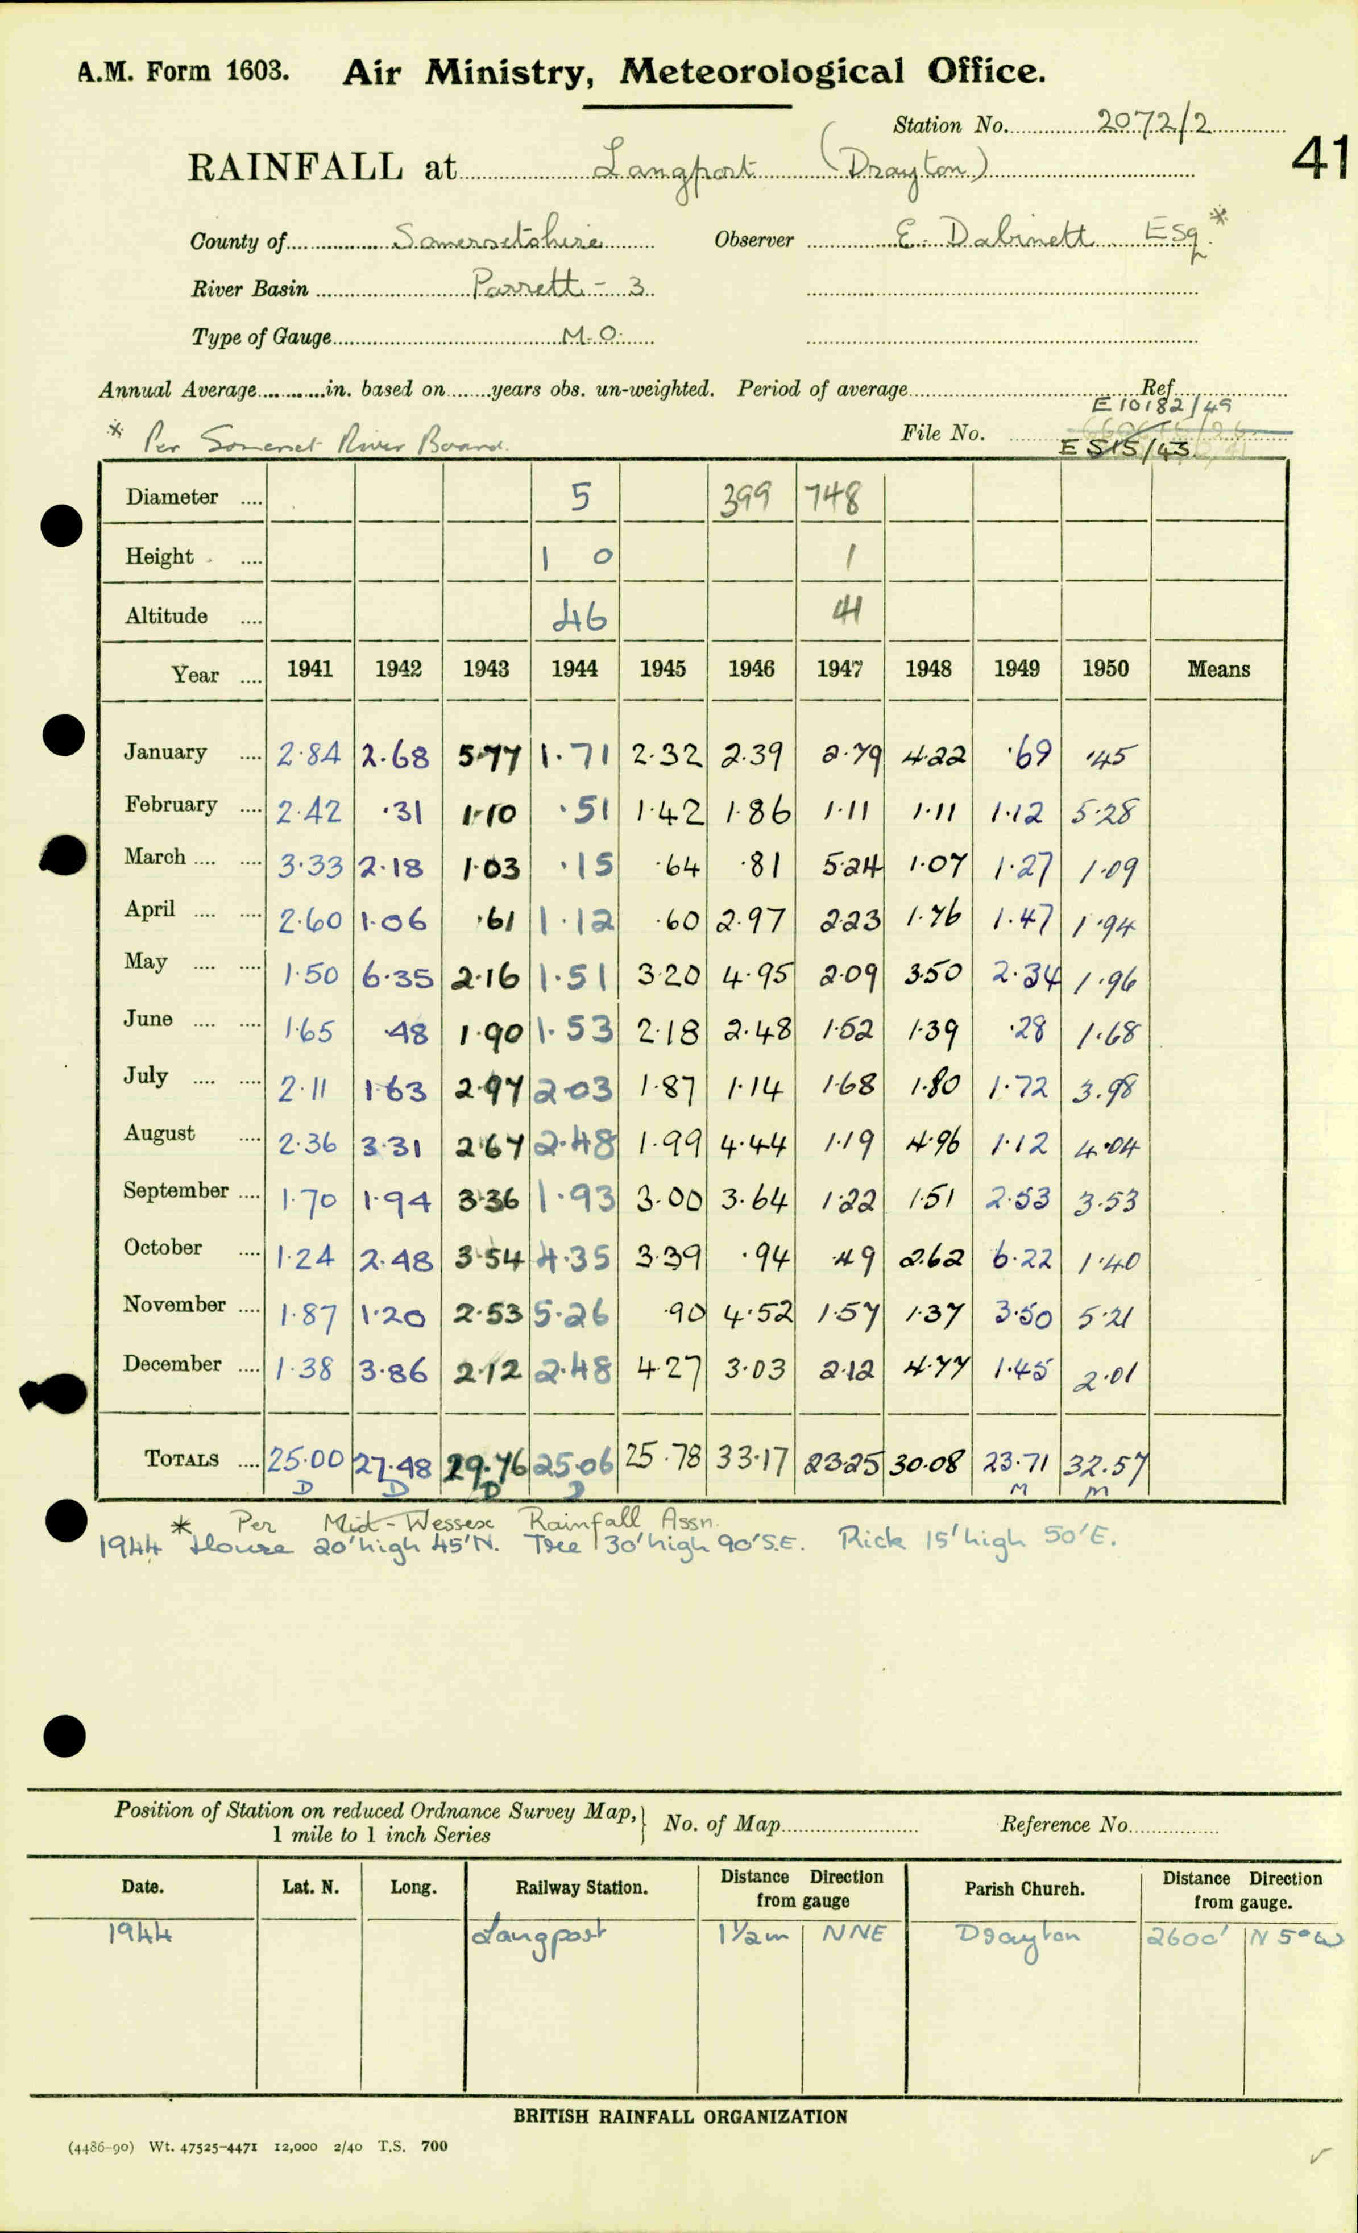 A.M. Form 1603. Air Ministry, Meteorological Office.
Station No. 2072/2
41
RAINFALL at Langport (Drayton)
County of Somersetshire Observer E. Dabinett Esq.*
River Basin Parrett - 3
Type of Gauge M.O.
Annual Average in. based on years obs. un-weighted. Period of average Ref
E10182/49
* Per Somerset River Board. File No.
E 515/43
Diameter 5 399 748
Height 1 0 1
Altitude 46 41
Year 1941 1942 1943 1944 1945 1946 1947 1948 1949 1950 Means
January 2.84 2.68 5.77 1.71 2.32 2.39 2.79 4.22 .69 .45
February 2.42 .31 1.10 .51 1.42 1.86 1.11 1.11 1.12 5.28
March 3.33 2.18 1.03 .15 .64 .81 5.24 1.07 1.27 1.09
April 2.60 1.06 .61 1.12 .60 2.97 2.23 1.76 1.47 1.94
May 1.50 6.35 2.16 1.51 3.20 4.95 2.09 3.50 2.34 1.96
June 1.65 .48 1.90 1.53 2.18 2.48 1.52 1.39 .28 1.68
July 2.11 1.63 2.97 2.03 1.87 1.14 1.68 1.80 1.72 3.98
August 2.36 3.31 2.67 2.48 1.99 4.44 1.19 4.96 1.12 4.04
September 1.70 1.94 3.36 1.93 3.00 3.64 1.22 1.51 2.53 3.53
October 1.24 2.48 3.54 4.35 3.39 .94 .49 2.62 6.22 1.40
November 1.87 1.20 2.53 5.26 .90 4.52 1.57 1.37 3.50 5.21
December 1.38 3.86 2.12 2.48 4.27 3.03 2.12 4.77 1.45 2.01
TOTALS 25.00 27.48 29.76 25.06 25.78 33.17 23.25 30.08 23.71 32.57
D D D D M M
* Per Mid-Wessex Rainfall Assn.
1944 House 20' high 45' N. Tree 30' high 90' S.E. Rick 15' high 50' E.
Position of Station on reduced Ordnance Survey Map, 1 mile to 1 inch Series } No. of Map Reference No.
Date. Lat. N. Long. Railway Station. Distance Direction from gauge Parish Church. Distance Direction from gauge.
1944 Langport 1½m NNE Drayton 2600' N 5° W
BRITISH RAINFALL ORGANIZATION
(4486-90) Wt. 47525-4471 12,000 2/40 T.S. 700